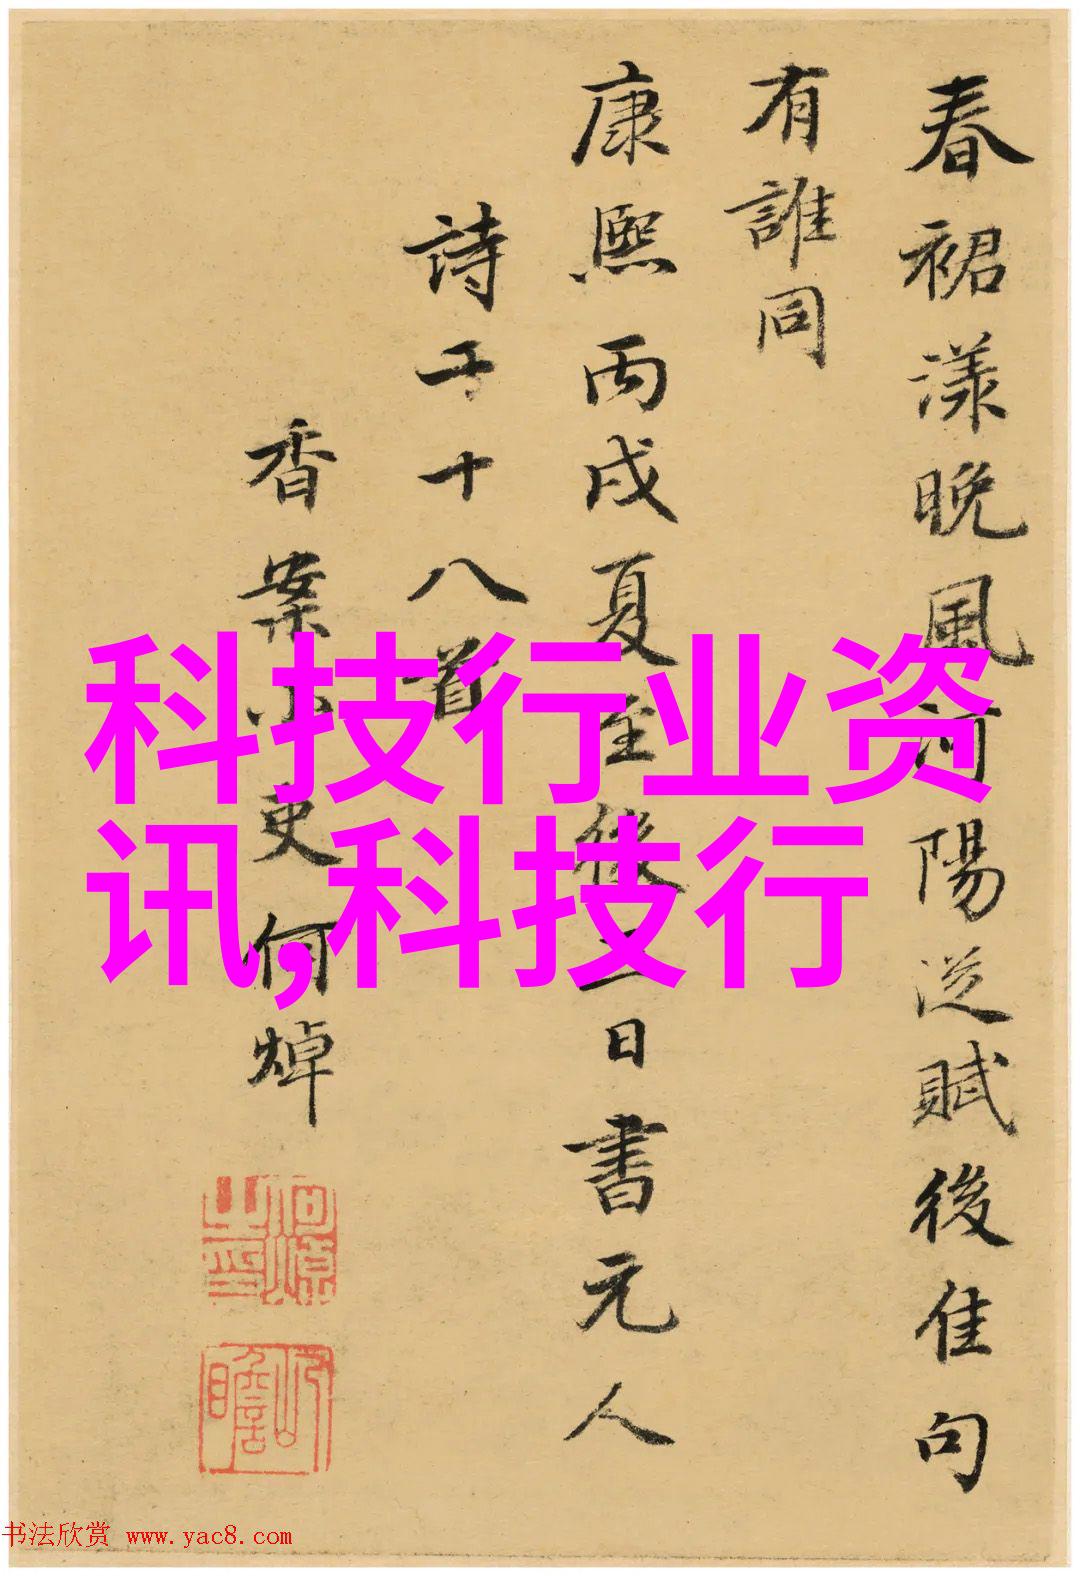 春裙漾晚風河陽從賦後佳句
有誰同
康熙丙戌夏至後二日書元人
詩二十八首
香案小吏何焯
科技行业资
讯,科技行
书法欣赏 www.yac8.com